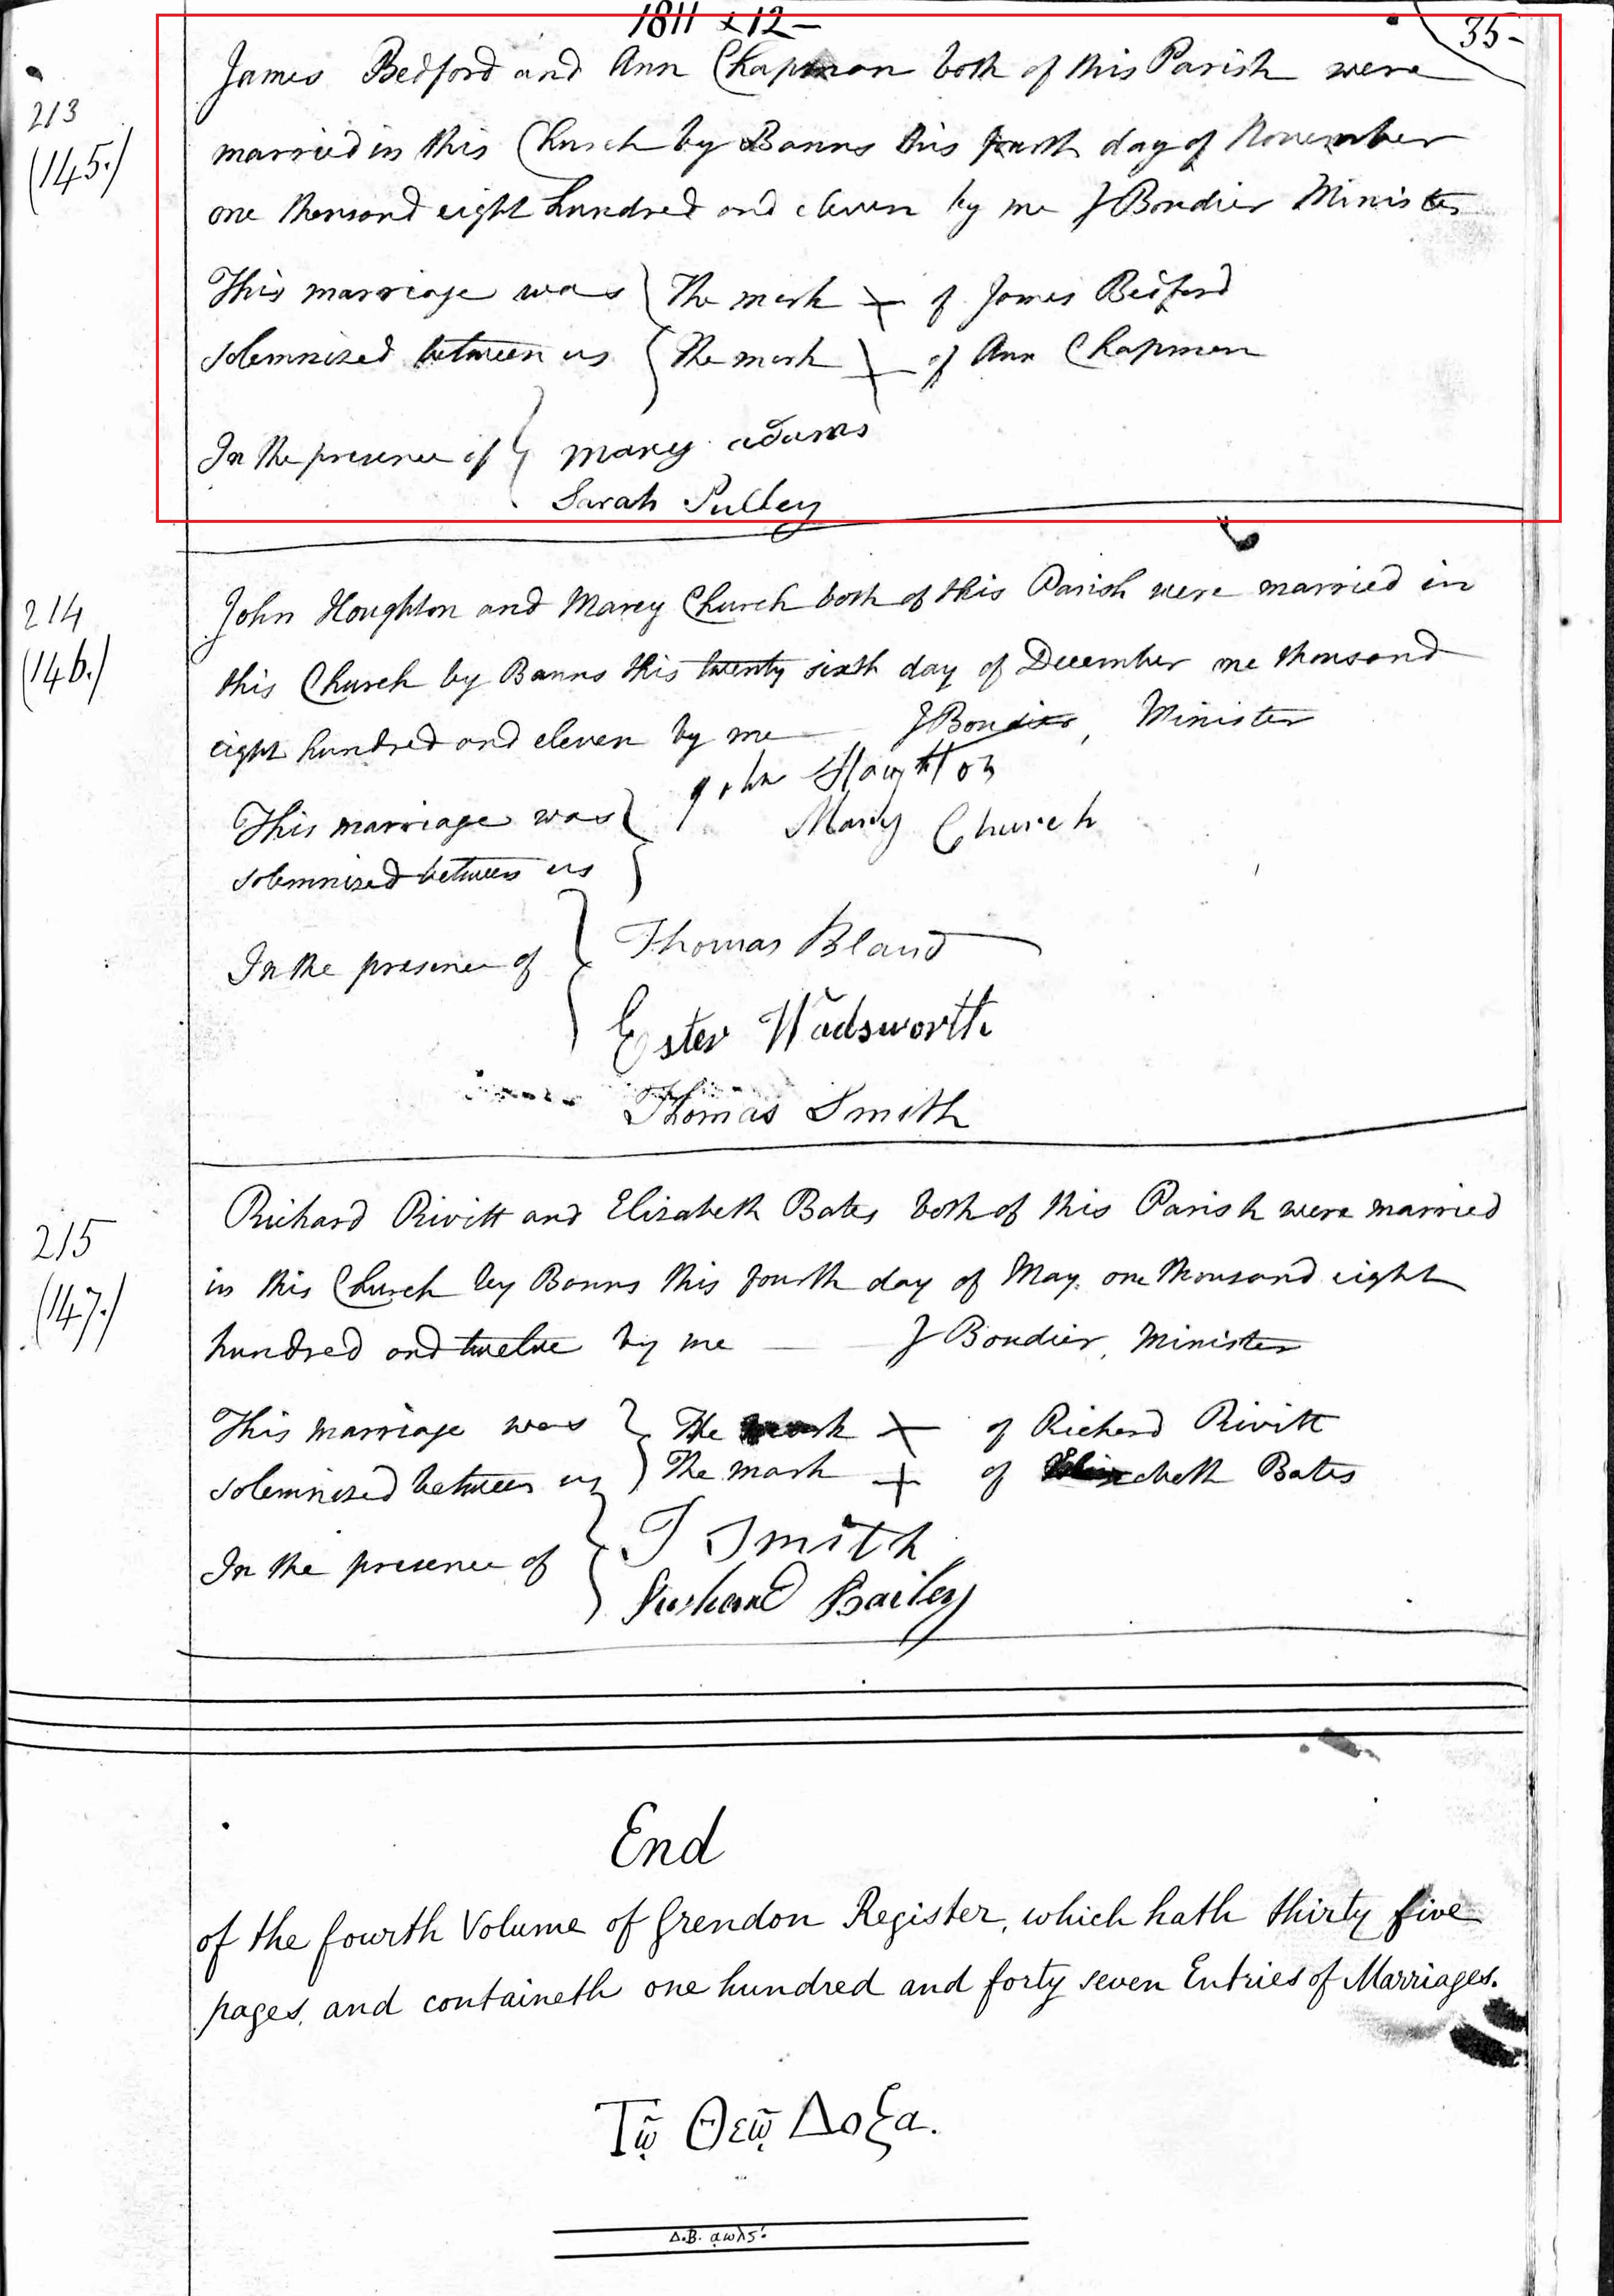 1811 & 12 -
35-
213
(145.)
James Bedford and Ann Chapman both of this Parish were
married in this Church by Banns this fourth day of November
one thousand eight hundred and eleven by me J Boudier Minister
This marriage was The mark of James Bedford
solemnized between us The mark of Ann Chapman
In the presence of Mary adams
Sarah Pulley
214
(146.)
John Houghton and Marey Church both of this Parish were married in
this Church by Banns this twenty sixth day of December one thousand
eight hundred and eleven by me J Boudier, Minister
John Haughton
This marriage was Mary Church
solemnized between us
In the presence of Thomas Bland
Ester Wadsworth
Thomas Smith
215
(147.)
Richard Rivitt and Elizabeth Bates both of this Parish were married
in this Church by Banns this fourth day of May. one thousand eight
hundred and twelve by me J Boudier, Minister
This marriage was The mark of Richard Rivitt
solemnized between us The mark of Elizabeth Bates
In the presence of T Smith
Bailey
End
of the fourth Volume of Grendon Register, which hath thirty five
pages, and containeth one hundred and forty seven Entries of Marriages.
Τῷ Θεῷ Δοξα.
Δ.Β. αωλς'